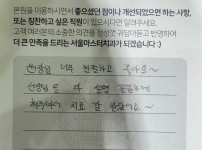 본원을 이용하시면서 좋으셨던 점이나 개선되었으면 하는 사항,
또는 칭찬하고 싶은 직원이 있으시다면 알려주세요.
고객 여러분의 소중한 의견을 정성껏 귀담아듣고 반영하여
더 큰 만족을 드리는 서울마스터치과가 되겠습니다 :)
원장님 너무 친절하고 좋아요~
선생님들 다 설명 꼼꼼하게
해주셔서 치료 잘 받았어요~